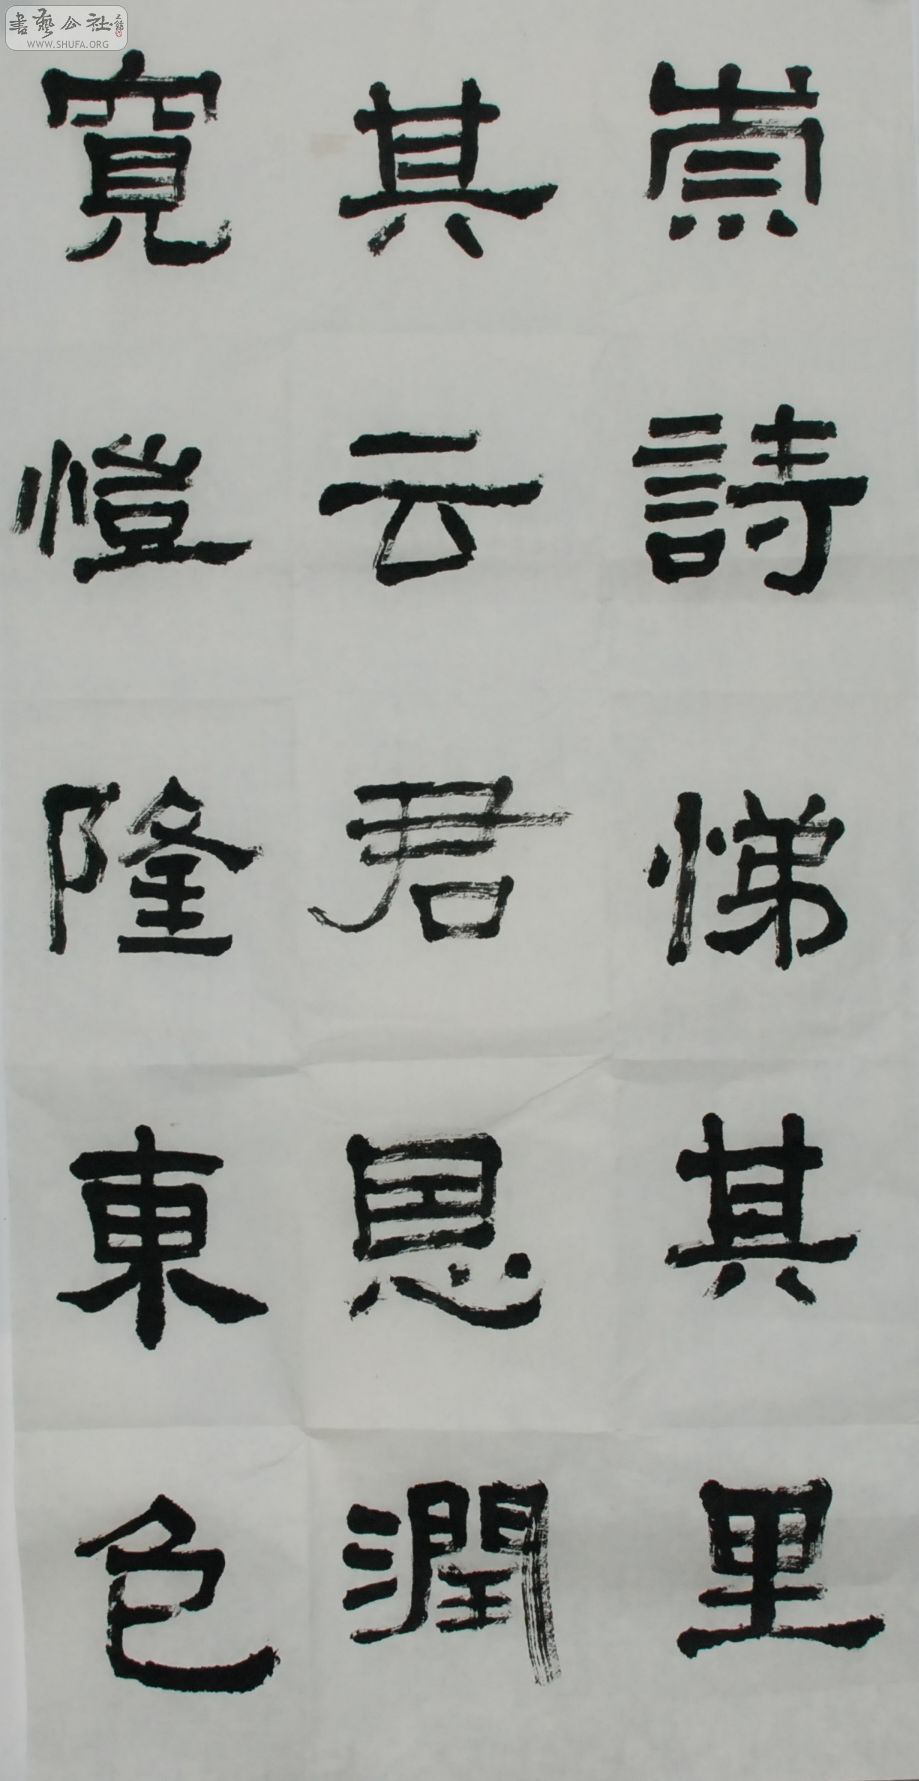 書藝公社
WWW.SHUFA.ORG
崇其寬
詩云愷
悌君隆
其恩東
里潤色